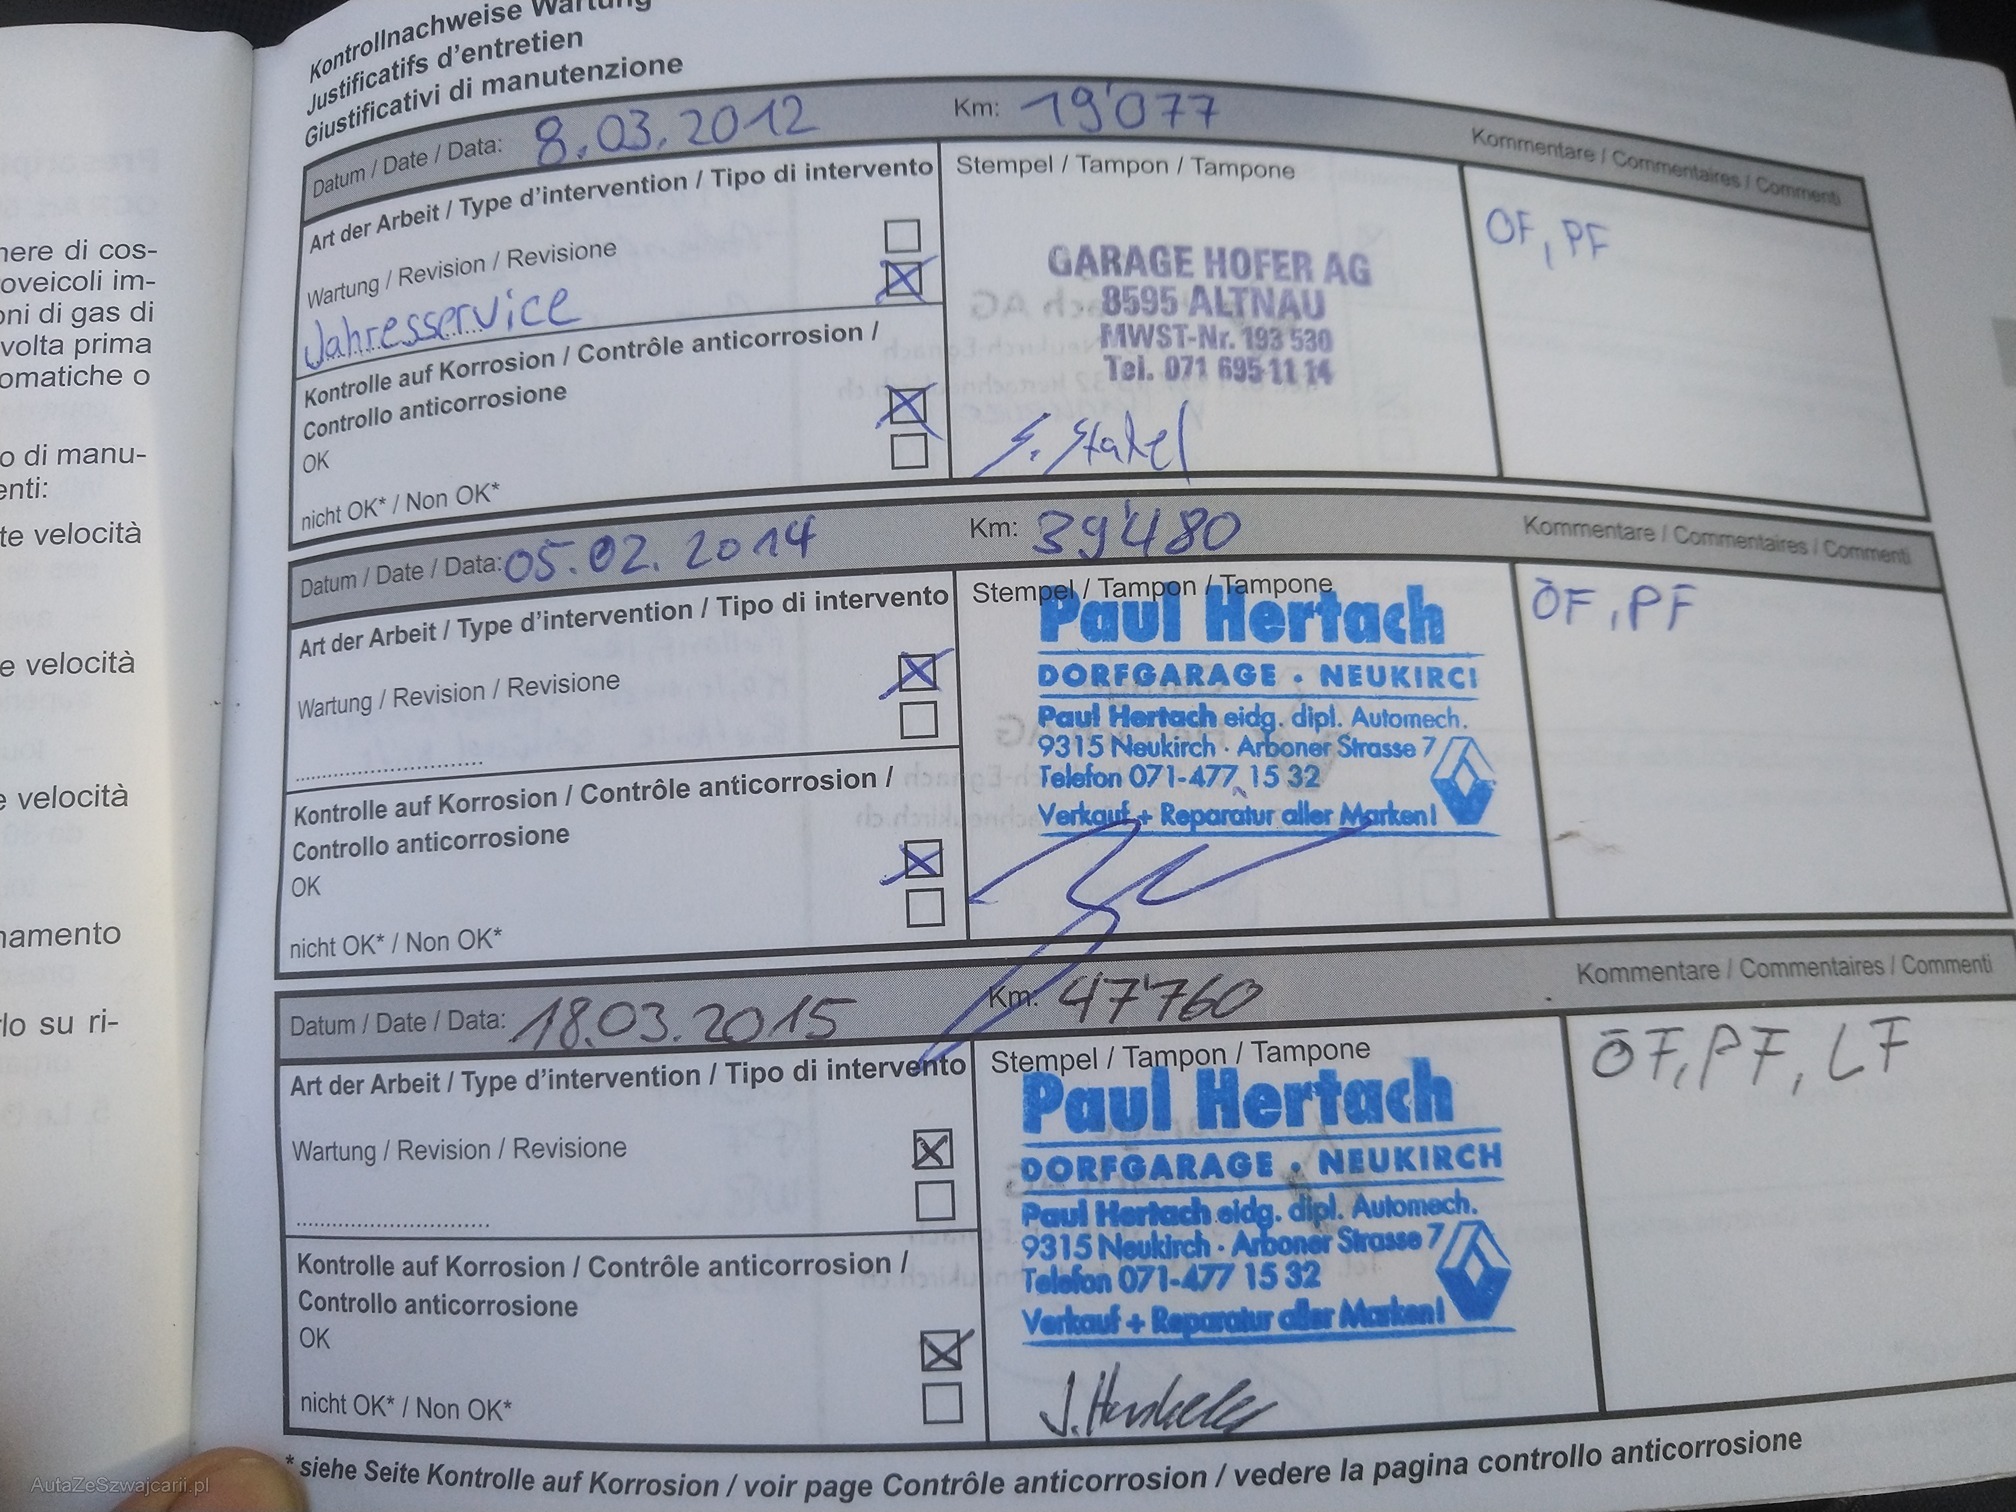 nere di cos-
oveicoli im-
oni di gas di
volta prima
omatiche o
o di manu-
enti:
te velocità
e velocità
e velocità
namento
lo su ri-
Kontrollnachweise Wartung
Justificatifs d'entretien
Giustificativi di manutenzione
Datum / Date / Data: 8.03.2012 Km: 19'077 Kommentare / Commentaires / Commenti
Art der Arbeit / Type d'intervention / Tipo di intervento
Wartung / Revision / Revisione
Jahresservice
Kontrolle auf Korrosion / Contrôle anticorrosion /
Controllo anticorrosione
OK
nicht OK* / Non OK*
Stempel / Tampon / Tampone
GARAGE HOFER AG
8595 ALTNAU
MWST-Nr. 193 530
Tel. 071 695 11 14
ÖF, PF
Datum / Date / Data: 05.02.2014 Km: 39'480 Kommentare / Commentaires / Commenti
Art der Arbeit / Type d'intervention / Tipo di intervento
Wartung / Revision / Revisione
Kontrolle auf Korrosion / Contrôle anticorrosion /
Controllo anticorrosione
OK
nicht OK* / Non OK*
Stempel / Tampon / Tampone
Paul Hertach
DORFGARAGE • NEUKIRCH
Paul Hertach eidg. dipl. Automech.
9315 Neukirch · Arboner Strasse 7
Telefon 071-477 15 32
Verkauf + Reparatur aller Marken!
ÖF, PF
Datum / Date / Data: 18.03.2015 Km: 47'760 Kommentare / Commentaires / Commenti
Art der Arbeit / Type d'intervention / Tipo di intervento
Wartung / Revision / Revisione
Kontrolle auf Korrosion / Contrôle anticorrosion /
Controllo anticorrosione
OK
nicht OK* / Non OK*
Stempel / Tampon / Tampone
Paul Hertach
DORFGARAGE • NEUKIRCH
Paul Hertach eidg. dipl. Automech.
9315 Neukirch · Arboner Strasse 7
Telefon 071-477 15 32
Verkauf + Reparatur aller Marken!
ÖF, PF, LF
* siehe Seite Kontrolle auf Korrosion / voir page Contrôle anticorrosion / vedere la pagina controllo anticorrosione
AutaZeSzwajcarii.pl